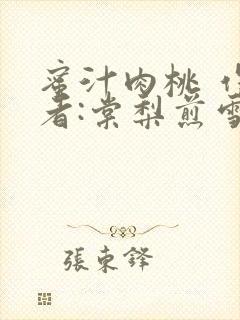 蜜汁肉桃 作
者:棠梨煎雪
張東鐸